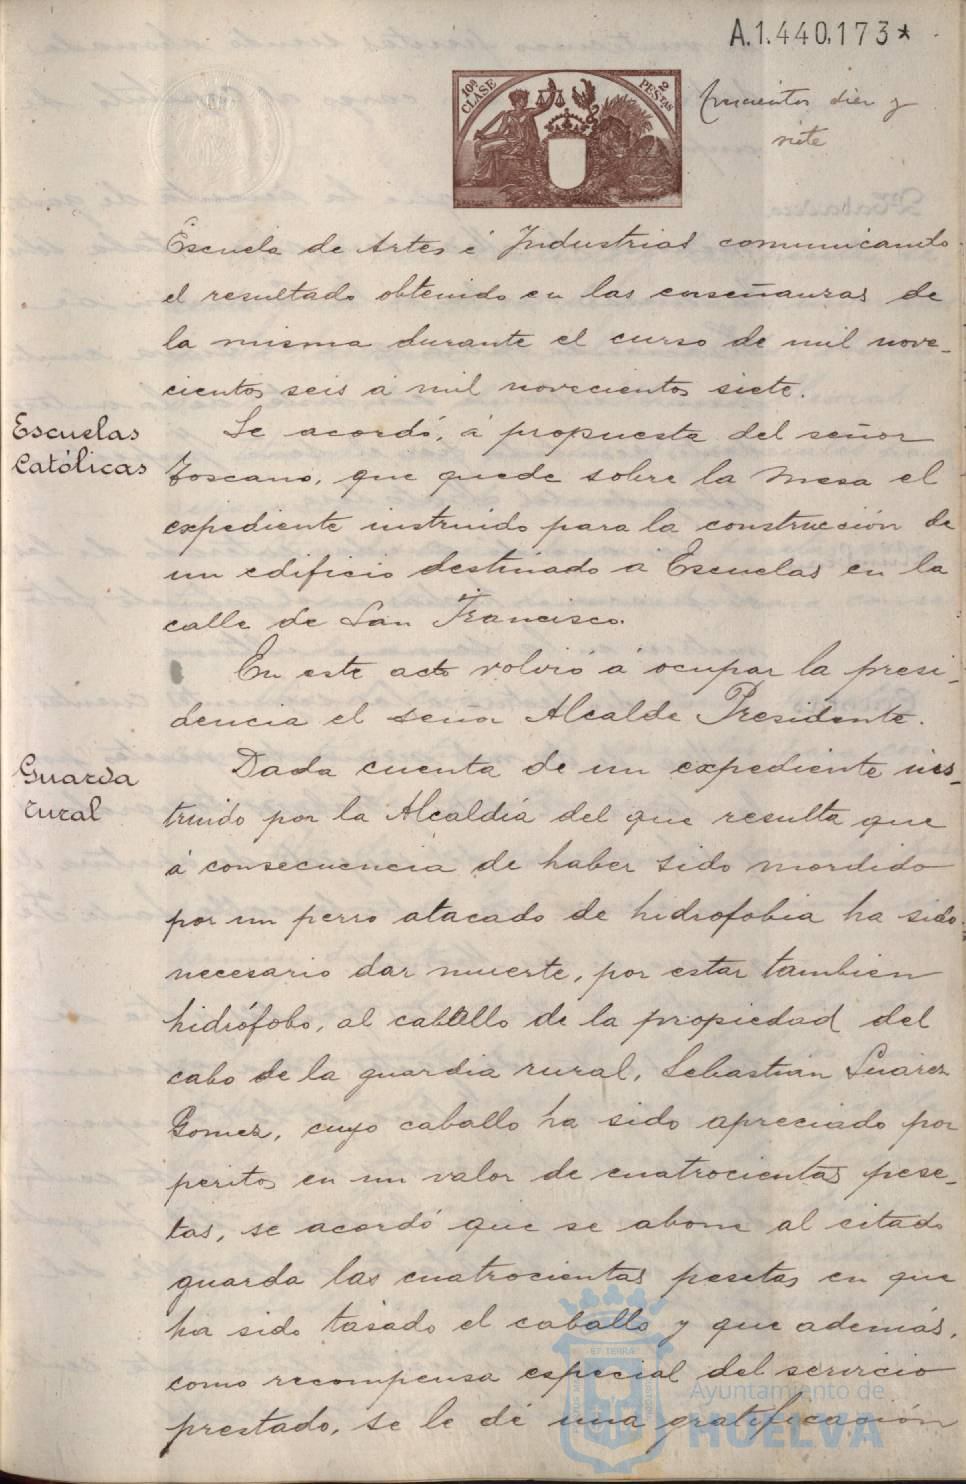 A.1.440.173*
10ª CLASE
2 PESETAS
diez y
siete
Escuela de Artes é Industrias comunicando
el resultado obtenido en las enseñanzas de
la misma durante el curso de mil nove-
cientos seis á mil novecientos siete.
Escuelas
Católicas
Se acordó, á propuesta del señor
Toscano, que quede sobre la mesa el
expediente instruido para la construcción de
un edificio destinado á Escuelas en la
calle de San Francisco.
En este acto volvió á ocupar la presi-
dencia el señor Alcalde Presidente.
Guarda
rural
Dada cuenta de un expediente ins-
truido por la Alcaldía del que resulta que
á consecuencia de haber sido mordido
por un perro atacado de hidrofobia ha sido
necesario dar muerte, por estar tambien
hidrófobo, al caballo de la propiedad del
cabo de la guardia rural, Sebastián Suárez
Gomez, cuyo caballo ha sido apreciado por
peritos en un valor de cuatrocientas pese-
tas, se acordó que se abone al citado
guarda las cuatrocientas pesetas en que
ha sido tasado el caballo y que además,
como recompensa especial del servicio
prestado, se le dé una gratificación
ET TERRA
Ayuntamiento de
HUELVA